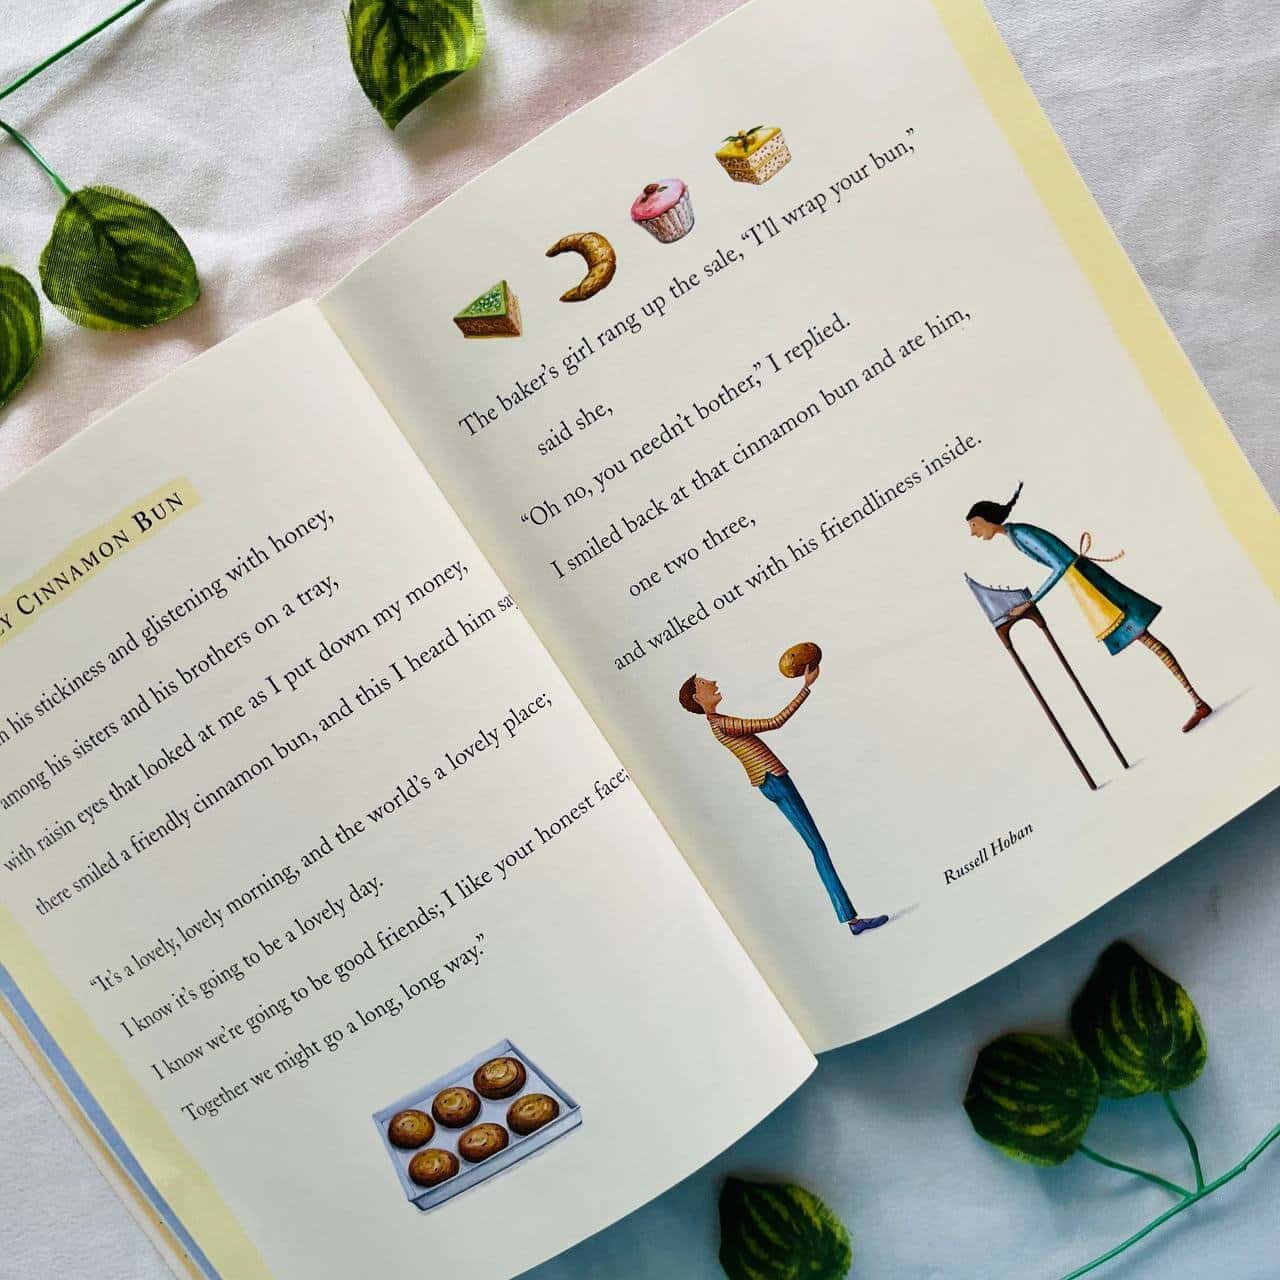 CINNAMON BUN
his stickiness and glistening with honey,
among his sisters and his brothers on a tray,
with raisin eyes that looked at me as I put down my money,
there smiled a friendly cinnamon bun, and this I heard him
“It’s a lovely, lovely morning, and the world’s a lovely place;
I know it’s going to be a lovely day.
I know we’re going to be good friends; I like your honest face;
Together we might go a long, long way.”
The baker’s girl rang up the sale, “I’ll wrap your bun,”
said she,
“Oh no, you needn’t bother,” I replied.
I smiled back at that cinnamon bun and ate him,
one two three,
and walked out with his friendliness inside.
Russell Hoban